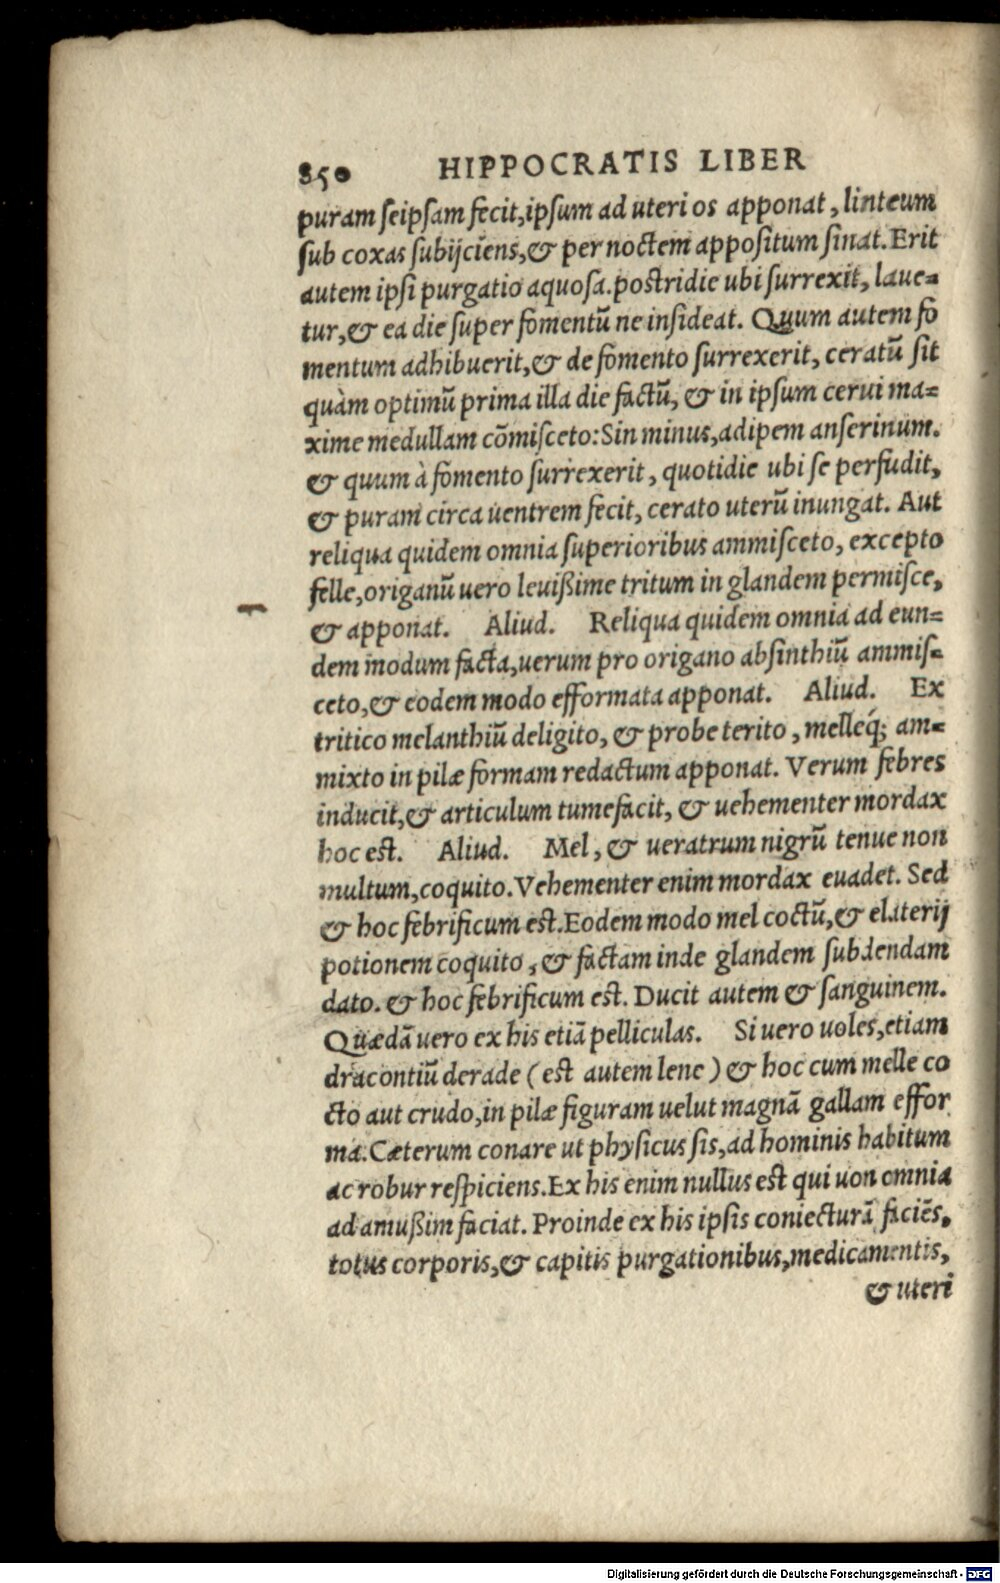 850 HIPPOCRATIS LIBER
puram seipsam fecit, ipsum ad uteri os apponat, linteum
sub coxas subijciens, & per noctem appositum sinat. Erit
autem ipsi purgatio aquosa. postridie ubi surrexit, laue=
tur, & ea die super fomentū ne insideat. Quum autem fo
mentum adhibuerit, & de fomento surrexerit, ceratū sit
quàm optimū prima illa die factū, & in ipsum cerui ma=
xime medullam cōmisceto: Sin minus, adipem anserinum.
& quum à fomento surrexerit, quotidie ubi se perfudit,
& puram circa uentrem fecit, cerato uterū inungat. Aut
reliqua quidem omnia superioribus ammisceto, excepto
felle, origanū uero leuißime tritum in glandem permisce,
& apponat. Aliud. Reliqua quidem omnia ad eun=
dem modum facta, uerum pro origano absinthiū ammis=
ceto, & eodem modo efformata apponat. Aliud. Ex
tritico melanthiū deligito, & probe terito, melleq́; am=
mixto in pilæ formam redactum apponat. Verum febres
inducit, & articulum tumefacit, & uehementer mordax
hoc est. Aliud. Mel, & ueratrum nigrū tenue non
multum, coquito. Vehementer enim mordax euadet. Sed
& hoc febrificum est. Eodem modo mel coctū, & elaterij
potionem coquito, & factam inde glandem subdendam
dato. & hoc febrificum est. Ducit autem & sanguinem.
Quædā uero ex his etiā pelliculas. Si uero uoles, etiam
dracontiū derade ( est autem lene ) & hoc cum melle co
cto aut crudo, in pilæ figuram uelut magnā gallam effor
ma. Cæterum conare ut physicus sis, ad hominis habitum
ac robur respiciens. Ex his enim nullus est qui uon omnia
ad amußim faciat. Proinde ex his ipsis coniecturā faciēs,
totus corporis, & capitis purgationibus, medicamentis,
& uteri
Digitalisierung gefördert durch die Deutsche Forschungsgemeinschaft - DFG